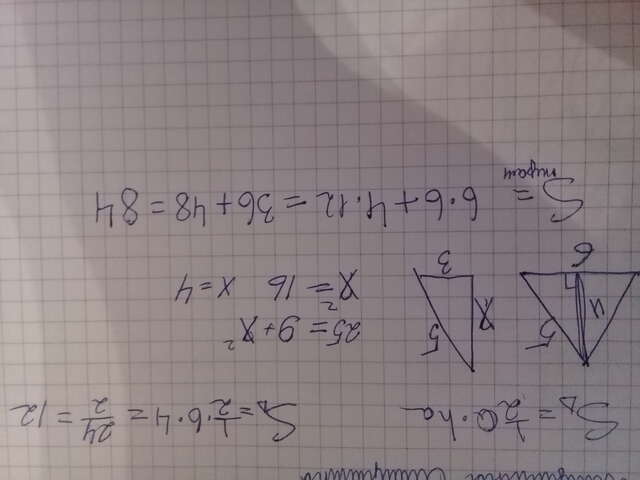 S△ = 1/2 a · ha    S△ = 1/2 · 6 · 4 = 24/2 = 12
5 4 6
x 5 3
25 = 9 + x²
x² = 16    x = 4
S = 6 · 6 + 4 · 12 = 36 + 48 = 84